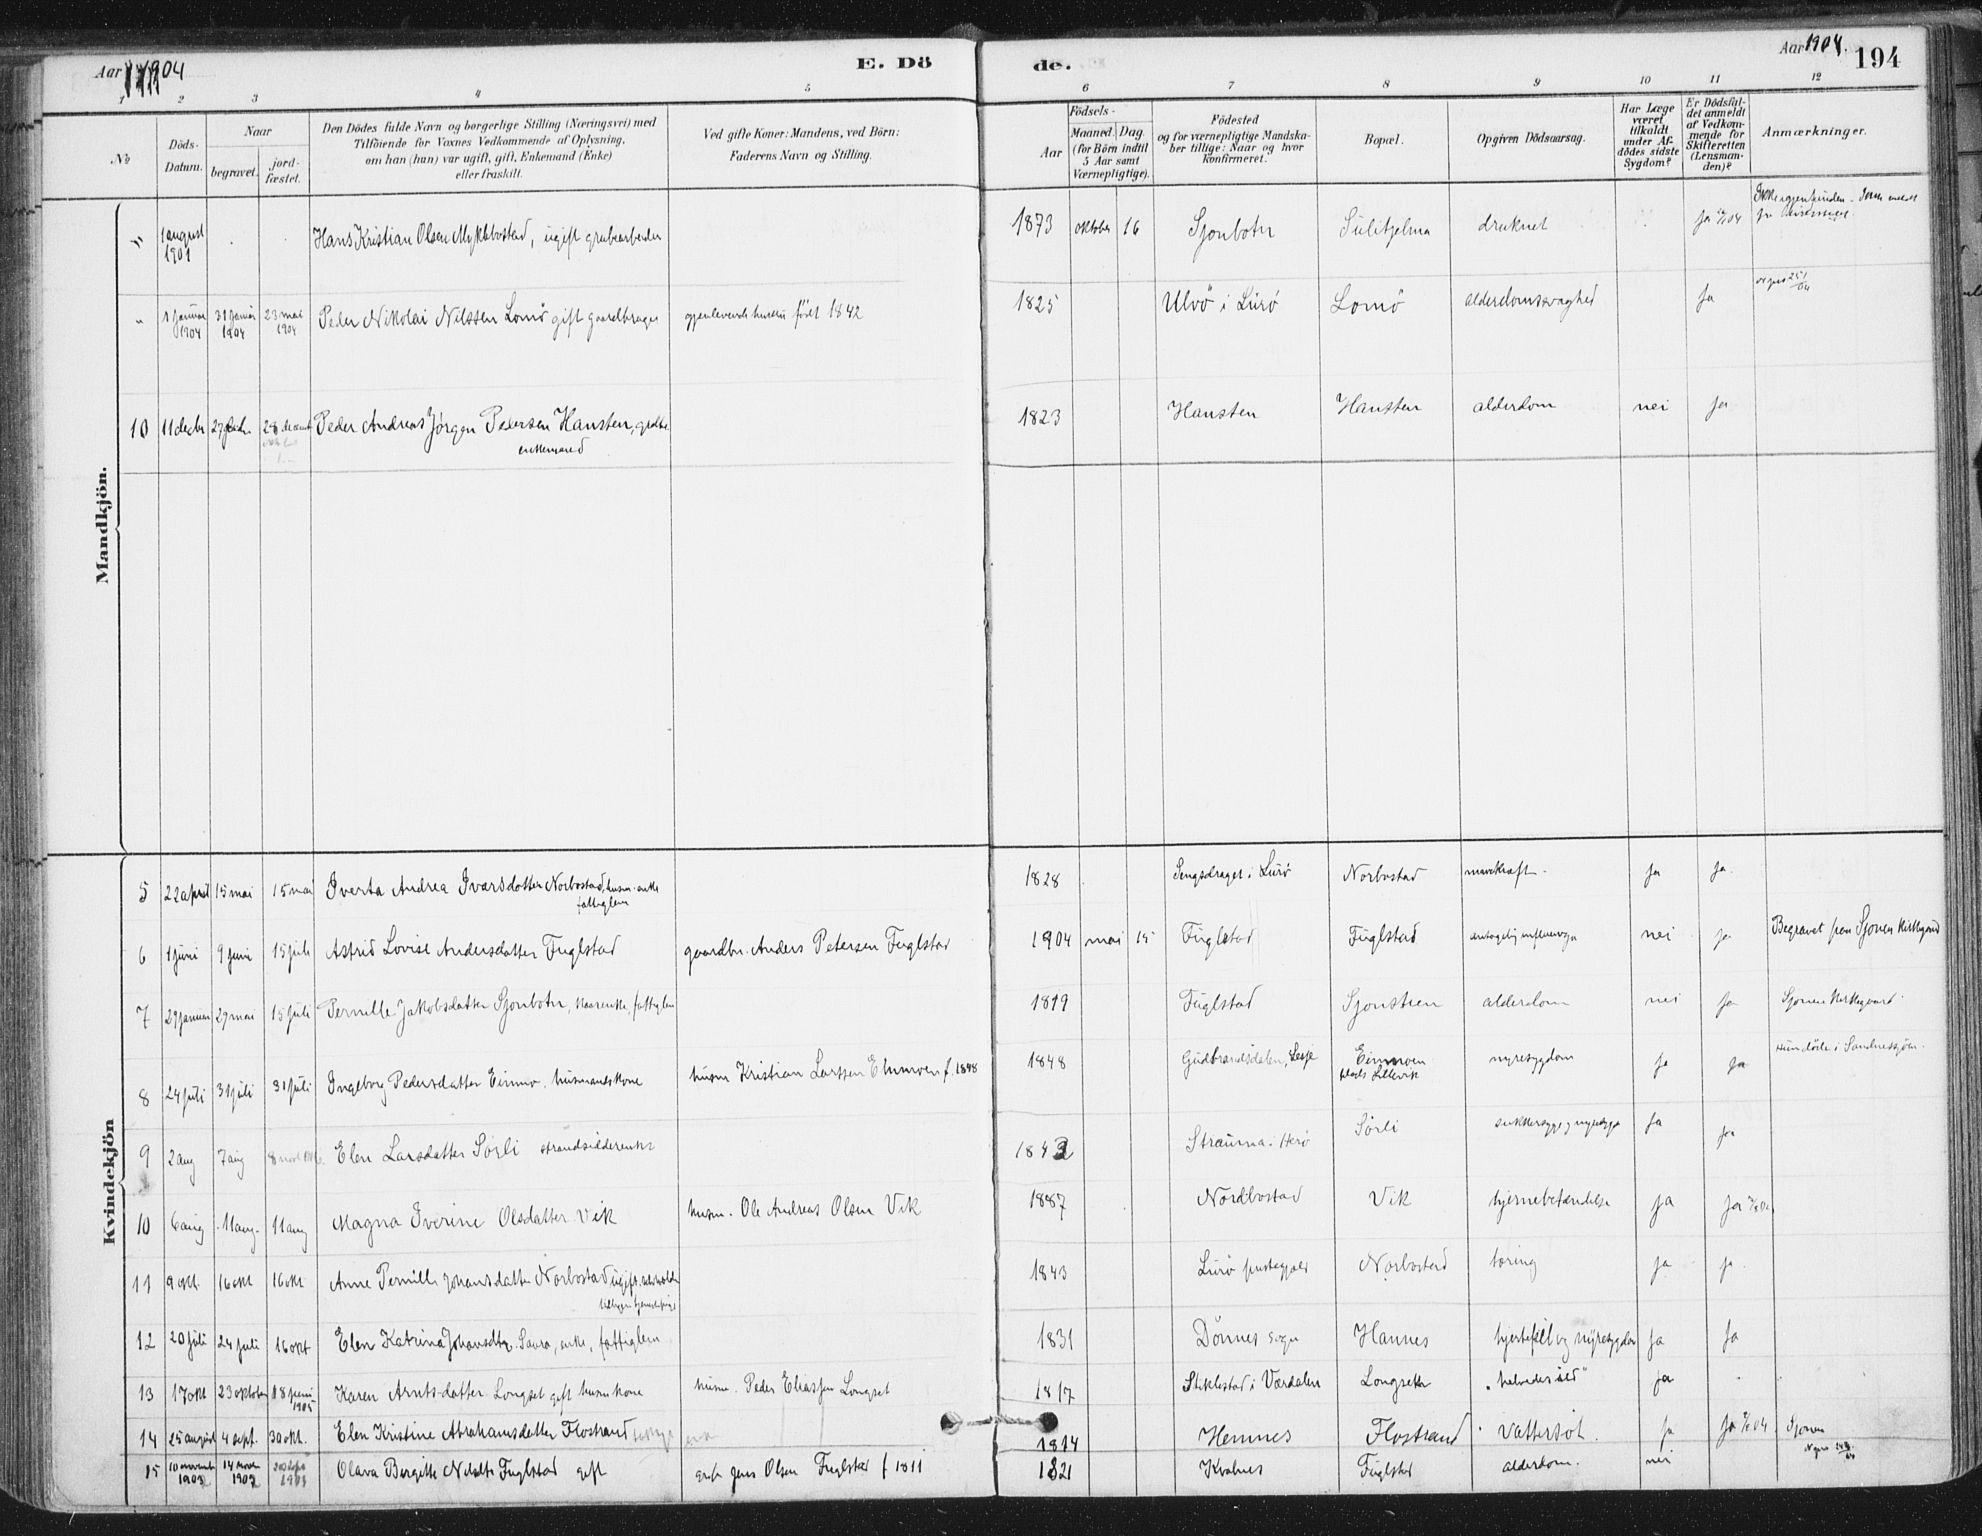 Aar 1904
E. Dö
de.
Aar 1904.
194
1 2 3 4 5 6 7 8 9 10 11 12
№
Döds-Datum.
Naar
begravet.
jord-fæstet.
Den Dödes fulde Navn og borgerlige Stilling (Næringsvei) med
Tilföiende for Voxnes Vedkommende af Oplysning,
om han (hun) var ugift, gift, Enkemand (Enke)
eller fraskilt.
Ved gifte Koner: Mandens, ved Börn:
Faderens Navn og Stilling.
Födsels-
Aar
Maaned. Dag.
(for Börn indtil
5 Aar samt
Værnepligtige).
Födested
og for værnepligtige Mandska-
ber tillige: Naar og hvor
konfirmeret.
Bopæl.
Opgiven Dödsaarsag.
Har Læge
været
tilkaldt
under Af-
dödes sidste
Sygdom?
Er Dödsfal-
det anmeldt
af Vedkom-
mende for
Skifteretten
(Lensman-
den)?
Anmærkninger.
Mandkjön.
" 1 august 1901 Hans Kristian Olsen Myklebostad, ugift grubearbeider 1873 oktober 16 Sjonbotn Sulitjelma druknet ja
" 1 januar 1904 31 januar 1904 23 mai 1904 Peder Nikolai Nilssen Lomö gift gaardbruger gjenlevende hustru født 1842 1825 Ulvö i Lurø Lomö alderdomssvaghed ja
10 11 decbr 27 decbr 28 Peder Andreas Jørgen Pedersen Hansten, enkemand 1823 Hansten Hansten alderdom nei ja
Kvindekjön
5 22 april 15 mai 15 mai Iverta Andrea Ivarsdatter Norbostad, husm. enke fattiglem 1828 i Lurø Norbostad ja ja
6 1 juni 9 juni 15 juli Astrid Lovise Andersdatter Fuglstad gaardbr. Anders Petersen Fuglstad 1904 mai 15 Fuglstad Fuglstad nei ja Begravet paa Sjonen Kirkegaard
7 29 januar 29 mai 15 juli Pernille Jakobsdatter Sjonbotn, fattiglem 1819 Fuglstad Sjonstien alderdom nei ja Sjonens Kirkegaard
8 24 juli 31 juli 31 juli Ingeborg Pedersdatter Einmo. husmandskone husm Kristian Larssen Einmoen f. 1848 1848 Gudbrandsdalen, Lesje Einmoen plads Lillevik nyresygdom ja ja Hun døde i Sandnessjöen.
9 2 aug 7 aug 8 Elen Larsdatter Sörli strandsidderenke 1843 Strauma i Herö Sörli sukkersyge og nyresyge ja ja
10 6 aug 11 aug. 11 aug Magna Iverine Olsdatter Vik husm. Ole Andreas Olsen Vik 1887 Nordbostad Vik hjernebetændelse ja ja
11 9 okt. 16 okt 16 okt Anne Pernille Johansdatter Norbostad ugift 1843 Lurø præstegjæld Norbostad tæring ja ja
12 20 juli 24 juli 16 okt Elen Katrina Johansdtr. Saura, enke, fattiglem 1831 Dönnes sogn Hannes hjertefeil og nyresygdom ja ja
13 17 okt 23 oktober 18 juni 1905 Karen Arntsdatter Longset gift husm kone husm. Peder Eliassen Longset 1817 Stiklestad i Værdalen Longseter "helvedesild" ja
14 25 august 4 sept. 30 okt. Elen Kristine Abrahamsdatter Flostrand 1814 Hemnes Flostrand Vattersot. ja ja Sjonen
15 10 november 1902 14 nov 1902 Olava Bergitte Nilsdtr Fuglstad gift Jens Olsen Fuglstad f 1811 1821 Kvalnes Fuglstad alderdom. nei